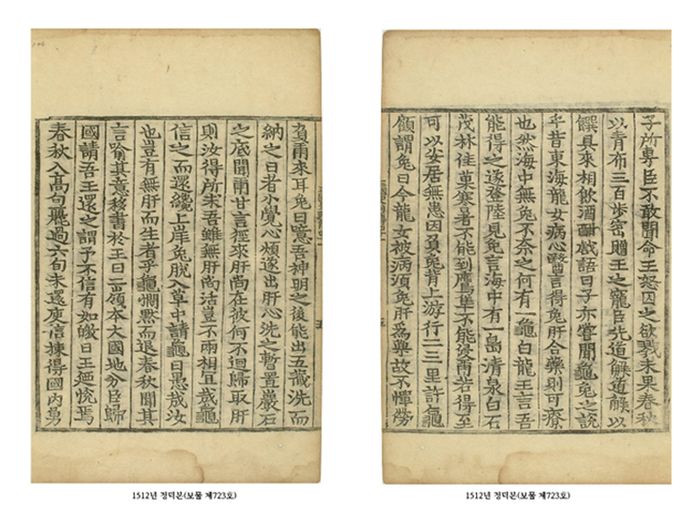 子所專臣不敢聞命王怒囚之欲戮未果春秋
以青布三百步密贈王之寵臣先道解道解以
饌具來相飮酒酣戱語曰子亦嘗聞龜兔之說
乎昔東海龍女病心醫言得兔肝合藥則可療
也然海中無兔不奈之何有一龜白龍王言吾
能得之遂登陸見兔言海中有一島清泉白石
茂林佳菓寒暑不能到鷹隼不能侵爾若得至
可以安居無患因負兔背上游行二三里許龜
顧謂兔曰今龍女被病須兔肝爲藥故不憚勞
1512년 정덕본(보물 제723호)
負爾來耳兔曰噫吾神明之後能出五藏洗而
納之日者小覺心煩遂出肝心洗之暫置巖石
之底聞爾甘言徑來肝尚在彼何不廻歸取肝
則汝得所求吾雖無肝尚活豈不兩相宜哉龜
信之而還纔上岸兔脫入草中謂龜曰愚哉汝
也豈有無肝而生者乎龜憫黙而退春秋聞其
言喩其意移書於王曰二嶺本大國地分臣歸
國請吾王還之謂予不信有如皦日王廼恱焉
春秋入高句麗過六旬未還庾信揀得國內勇
1512년 정덕본(보물 제723호)